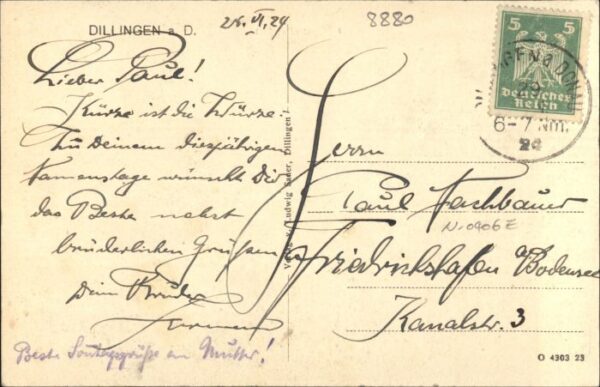 DILLINGEN a. D.
28. VI. 24
8880
Lieber Paul!
Kürze ist die Würze.
Zu Deinem diesjährigen
Namenstage wünscht Dir
das Beste nebst
brüderlichen Grüßen
Dein Bruder
Beste Sonntagsgrüße an Mutter!
Verlag v. Ludwig Sauer, Dillingen
5 5
Deutsches
Reich
a. DONAU
6-7 Nm.
24
Herrn
Paul Nachbauer
N. 0906 E
Friedrichshafen a/Bodensee
Kanalstr. 3
O 4303 23